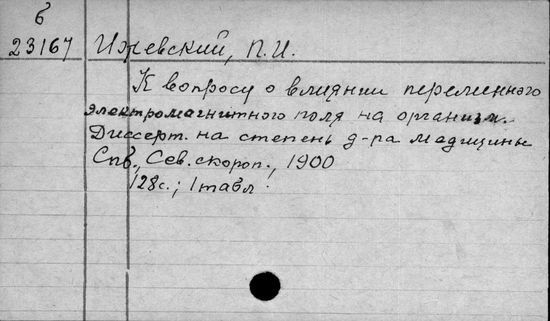 б
23167 Ижевский, П.И.
К вопросу о влиянии переменного
электромагнитного поля на организм.
Диссерт. на степень д-ра медицины
Спб., Сев. скороп., 1900
128с.; 1 табл.